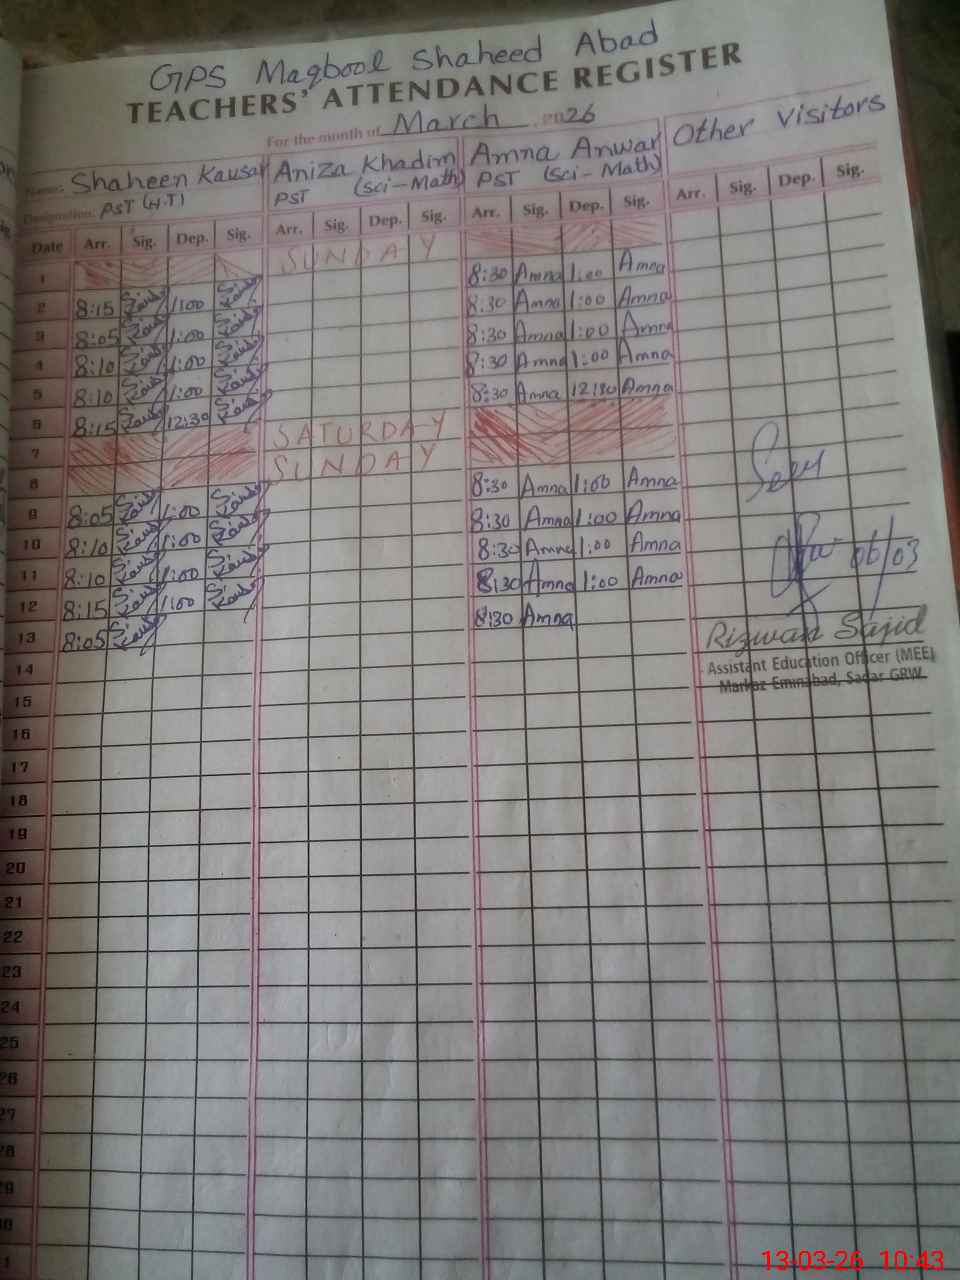 GPS Maqbool Shaheed Abad
TEACHERS' ATTENDANCE REGISTER
For the month of March 2026
Name: Shaheen Kausar Aniza Khadim Amna Anwar Other Visitors
Designation: PST (H.T) PST (Sci-Math) PST (Sci-Math)
Date Arr. Sig. Dep. Sig. Arr. Sig. Dep. Sig. Arr. Sig. Dep. Sig. Arr. Sig. Dep. Sig.
1 SUNDAY
2 8:15 1:00 8:30 Amna 1:00 Amna
3 8:05 1:00 8:30 Amna 1:00 Amna
4 8:10 1:00 8:30 Amna 1:00 Amna
5 8:10 1:00 8:30 Amna 1:00 Amna
6 8:15 12:30 8:30 Amna 12:30 Amna
7 SATURDAY
8 SUNDAY
9 8:05 1:00 8:30 Amna 1:00 Amna
10 8:10 1:00 8:30 Amna 1:00 Amna
11 8:10 1:00 8:30 Amna 1:00 Amna
12 8:15 1:00 8:30 Amna 1:00 Amna
13 8:05 8:30 Amna
06/03
Rizwan Sajid
Assistant Education Officer (MEE)
Markaz Eminabad, Sadar GRW
14
15
16
17
18
19
20
21
22
23
24
25
26
27
28
29
30
1
13-03-26 10:43